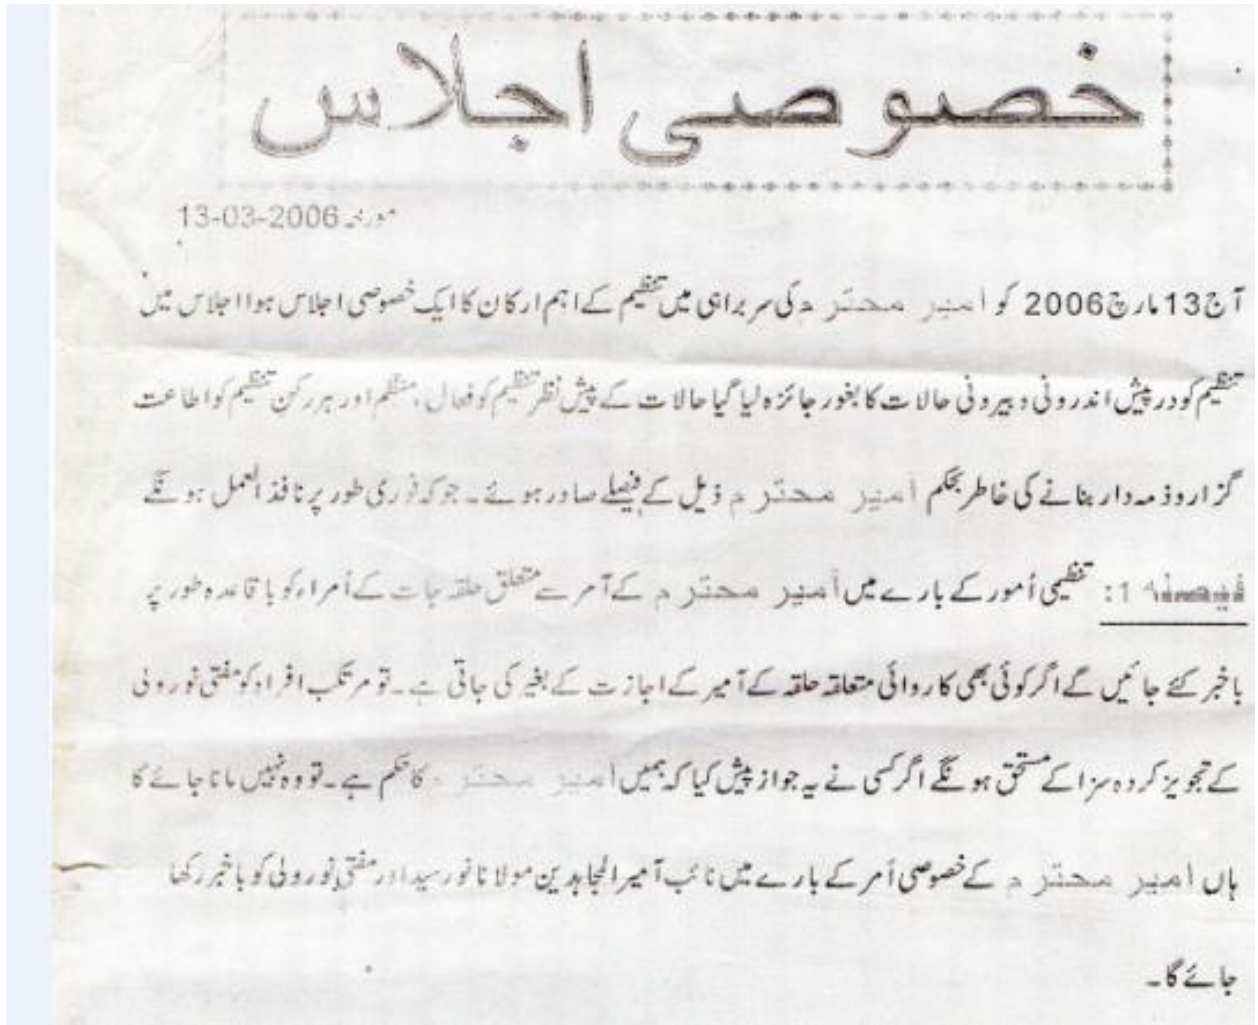 خصوصی اجلاس
مورخہ 13-03-2006
آج 13 مارچ 2006 کو امیر محترم کی سربراہی میں تنظیم کے اہم ارکان کا ایک خصوصی اجلاس ہوا اجلاس میں
تنظیم کو درپیش اندرونی و بیرونی حالات کا بغور جائزہ لیا گیا حالات کے پیش نظر تنظیم کو فعال، منظم اور ہر رکن تنظیم کو اطاعت
گزار و ذمہ دار بنانے کی خاطر بحکم امیر محترم ذیل کے فیصلے صادر ہوئے۔ جو کہ فوری طور پر نافذ العمل ہونگے
فیصلہ 1: تنظیمی اُمور کے بارے میں امیر محترم کے آمر سے متعلق حلقہ جات کے اُمراء کو باقاعدہ طور پر
باخبر کئے جائیں گے اگر کوئی بھی کاروائی متعلقہ حلقہ کے آمیر کے اجازت کے بغیر کی جاتی ہے۔ تو مرتکب افراد کو مفتی نور ولی
کے تجویز کردہ سزا کے مستحق ہونگے اگر کسی نے یہ جواز پیش کیا کہ ہمیں امیر محترم کا حکم ہے۔ تو وہ نہیں مانا جائے گا
ہاں امیر محترم کے خصوصی اَمر کے بارے میں نائب آمیر المجاہدین مولانا نور سید اور مفتی نور ولی کو باخبر رکھا
جائے گا۔